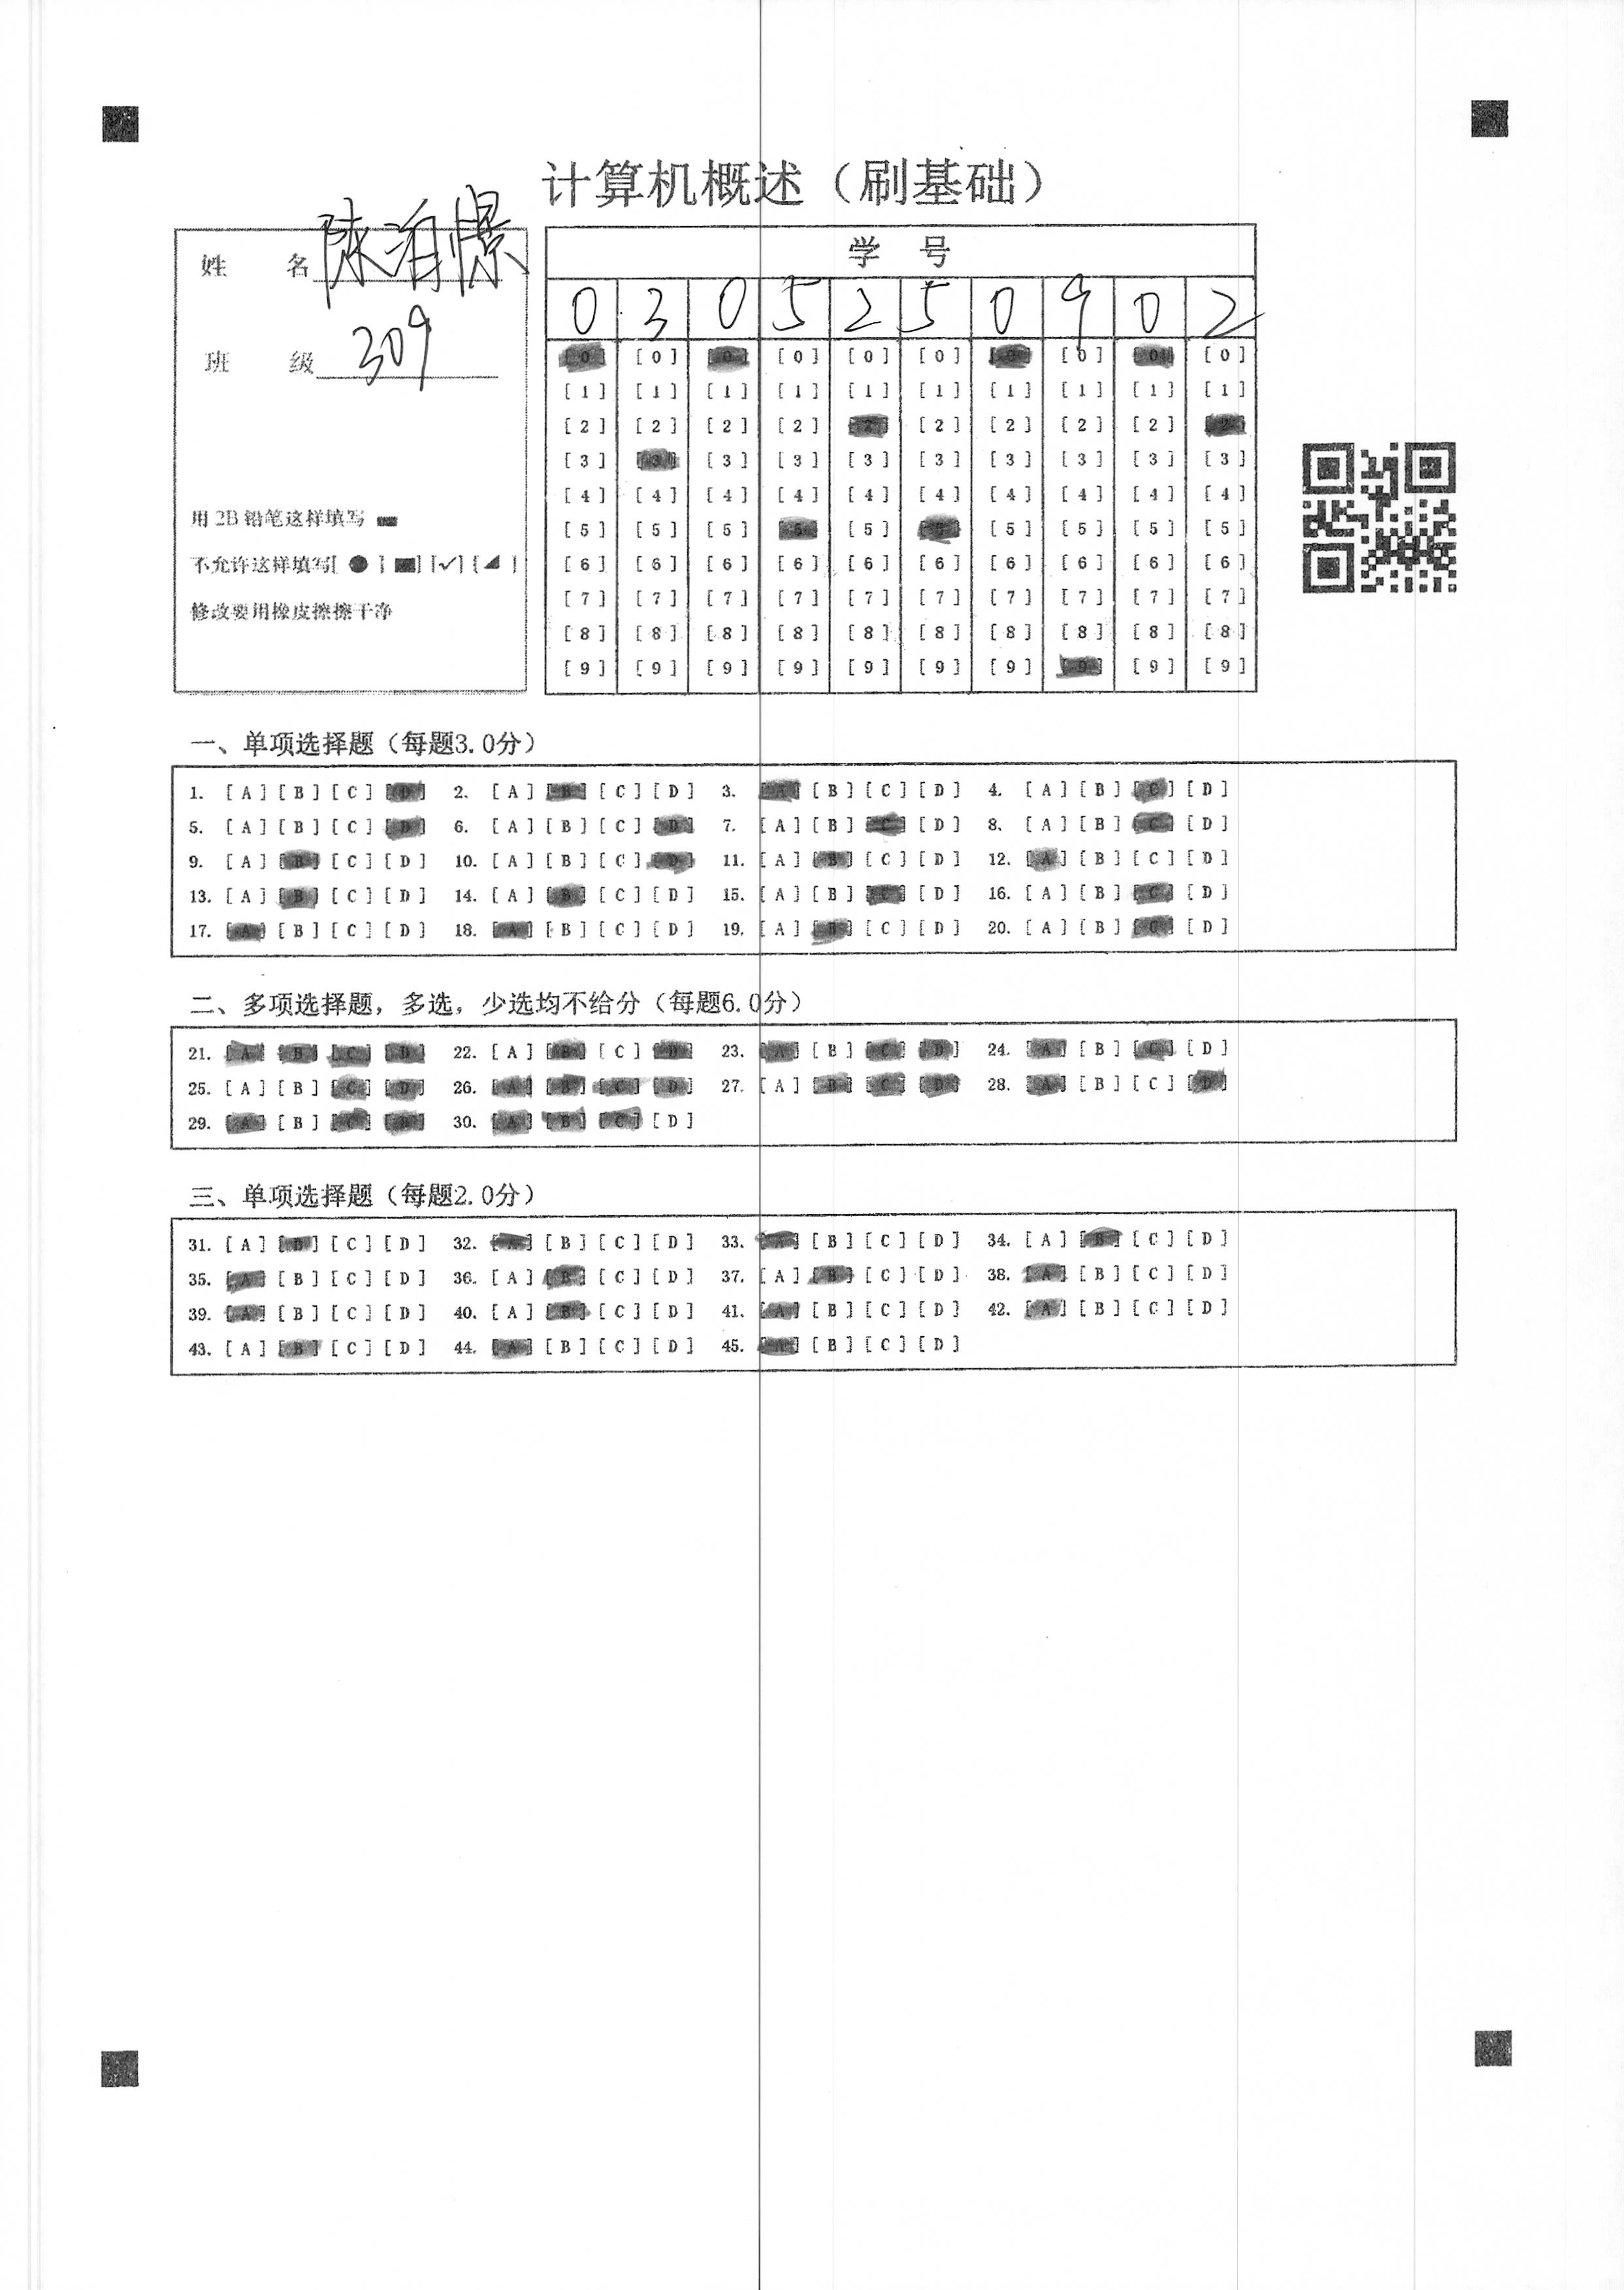 计算机概述（刷基础）
姓 名 陈泊憬
班 级 309
用 2B 铅笔这样填写
不允许这样填写[ ● ] [■] [✓] [◢ ]
修改要用橡皮擦擦干净
学 号
0 3 0 5 2 5 0 9 0 2
[0] [0] [0] [0] [0] [0] [0] [0] [0] [0]
[1] [1] [1] [1] [1] [1] [1] [1] [1] [1]
[2] [2] [2] [2] [2] [2] [2] [2] [2] [2]
[3] [3] [3] [3] [3] [3] [3] [3] [3] [3]
[4] [4] [4] [4] [4] [4] [4] [4] [4] [4]
[5] [5] [5] [5] [5] [5] [5] [5] [5] [5]
[6] [6] [6] [6] [6] [6] [6] [6] [6] [6]
[7] [7] [7] [7] [7] [7] [7] [7] [7] [7]
[8] [8] [8] [8] [8] [8] [8] [8] [8] [8]
[9] [9] [9] [9] [9] [9] [9] [9] [9] [9]
一、单项选择题（每题3.0分）
1. [A] [B] [C] [D] 2. [A] [B] [C] [D] 3. [A] [B] [C] [D] 4. [A] [B] [C] [D]
5. [A] [B] [C] [D] 6. [A] [B] [C] [D] 7. [A] [B] [C] [D] 8. [A] [B] [C] [D]
9. [A] [B] [C] [D] 10. [A] [B] [C] [D] 11. [A] [B] [C] [D] 12. [A] [B] [C] [D]
13. [A] [B] [C] [D] 14. [A] [B] [C] [D] 15. [A] [B] [C] [D] 16. [A] [B] [C] [D]
17. [A] [B] [C] [D] 18. [A] [B] [C] [D] 19. [A] [B] [C] [D] 20. [A] [B] [C] [D]
二、多项选择题，多选，少选均不给分（每题6.0分）
21. [A] [B] [C] [D] 22. [A] [B] [C] [D] 23. [A] [B] [C] [D] 24. [A] [B] [C] [D]
25. [A] [B] [C] [D] 26. [A] [B] [C] [D] 27. [A] [B] [C] [D] 28. [A] [B] [C] [D]
29. [A] [B] [C] [D] 30. [A] [B] [C] [D]
三、单项选择题（每题2.0分）
31. [A] [B] [C] [D] 32. [A] [B] [C] [D] 33. [A] [B] [C] [D] 34. [A] [B] [C] [D]
35. [A] [B] [C] [D] 36. [A] [B] [C] [D] 37. [A] [B] [C] [D] 38. [A] [B] [C] [D]
39. [A] [B] [C] [D] 40. [A] [B] [C] [D] 41. [A] [B] [C] [D] 42. [A] [B] [C] [D]
43. [A] [B] [C] [D] 44. [A] [B] [C] [D] 45. [A] [B] [C] [D]